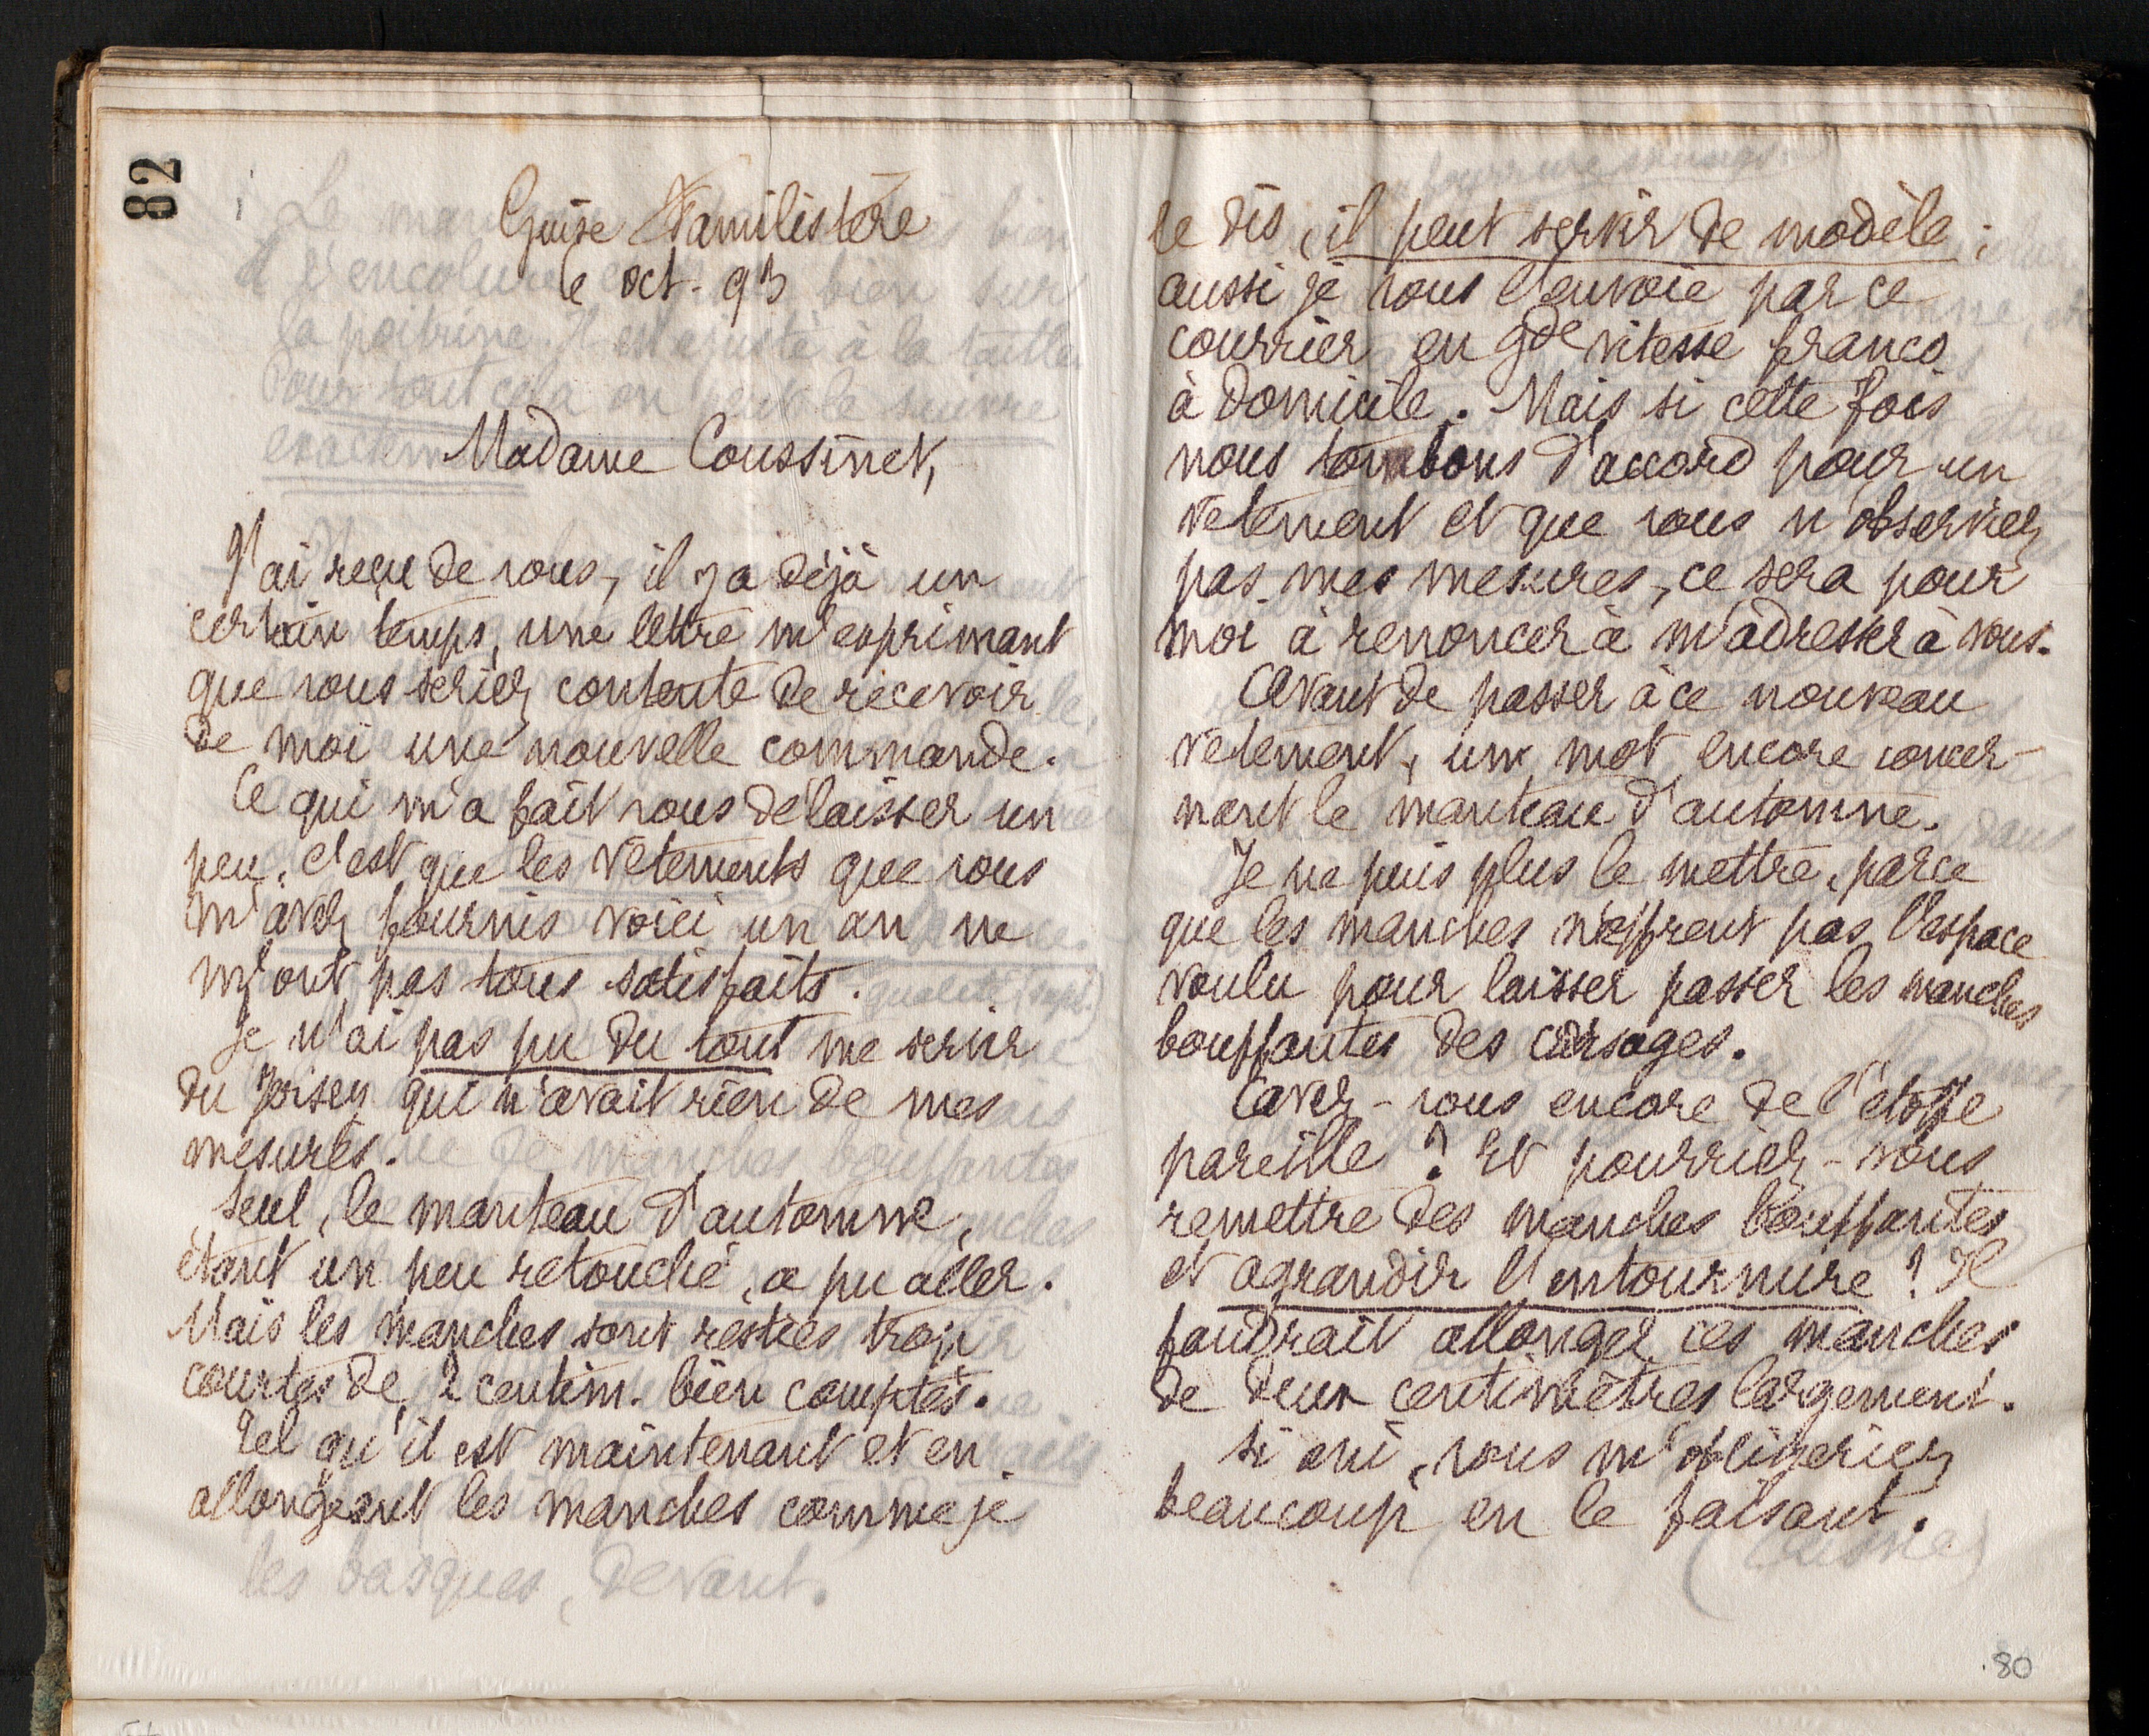 82
Guise Familistère
le oct. 93
Madame Coussinet,
J'ai reçu de vous, il y a déjà un
certain temps, une lettre m'exprimant
que vous seriez contente de recevoir
de moi une nouvelle commande.
Ce qui m'a fait vous délaisser un
peu, c'est que les vêtements que vous
m'avez fournis voici un an ne
m'ont pas tous satisfaits.
Je n'ai pas pu du tout me servir
du Jersey qui n'avait rien de mes
mesures.
Seul, le manteau d'automne,
étant un peu retouché, a pu aller.
Mais les manches sont restées trop
courtes de 2 centim. bien comptés.
Tel qu'il est maintenant et en
allongeant les manches comme je
le dis, il peut servir de modèle ;
aussi je vous l'envoie par ce
courrier en gde vitesse franco
à domicile. Mais si cette fois
nous tombons d'accord pour un
vêtement et que vous n'observiez
pas mes mesures, ce sera pour
moi à renoncer à m'adresser à vous.
Avant de passer à ce nouveau
vêtement, un mot encore concer-
nant le manteau d'automne.
Je ne puis plus le mettre, parce
que les manches n'offrent pas l'espace
voulu pour laisser passer les manches
bouffantes des corsages.
Avez-vous encore de l'étoffe
pareille ? Et pourriez-vous
remettre des manches bouffantes
et agrandir l'entournure ? Il
faudrait allonger ces manches
de deux centimètres largement.
Si oui, vous m'obligeriez
beaucoup en le faisant.
80